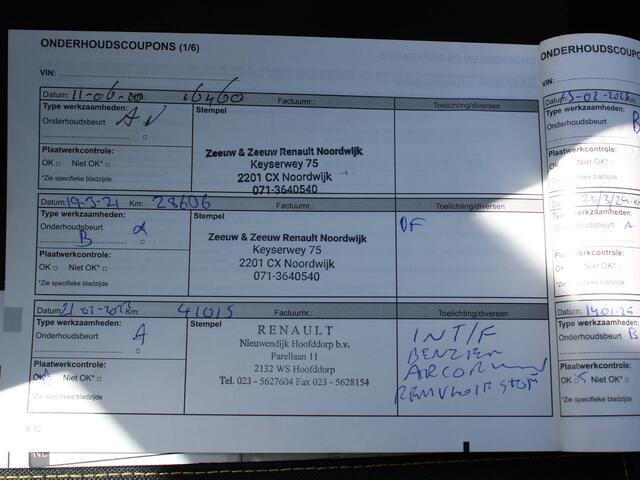 ONDERHOUDSCOUPONS (1/6)
VIN:
Datum: 11-06-20 16460 Factuurnr.: Toelichting/diversen
Type werkzaamheden:
Onderhoudsbeurt A
Stempel
Zeeuw & Zeeuw Renault Noordwijk
Keyserwey 75
2201 CX Noordwijk
071-3640540
Plaatwerkcontrole:
OK □ Niet OK* □
*Zie specifieke bladzijde
Datum: 19-3-21 Km: 28606 Factuurnr.: Toelichting/diversen
Type werkzaamheden:
Onderhoudsbeurt
B
Stempel
Zeeuw & Zeeuw Renault Noordwijk
Keyserwey 75
2201 CX Noordwijk
071-3640540
OF
Plaatwerkcontrole:
OK □ Niet OK* □
*Zie specifieke bladzijde
Datum: 21-02-2022 Km: 41015 Factuurnr.: Toelichting/diversen
Type werkzaamheden:
Onderhoudsbeurt A
Stempel
RENAULT
Nieuwendijk Hoofddorp b.v.
Parellaan 11
2132 WS Hoofddorp
Tel. 023 - 5627604 Fax 023 - 5628154
INT/F
BENZIEN
Plaatwerkcontrole:
OK Niet OK* □
*Zie specifieke bladzijde
6.12
ONDERHOUDSCOUPO
VIN:
Type werkzaamheden:
Onderhoudsbeurt B
Plaatwerkcontrole:
OK □ Niet OK* □
*Zie specifieke bladzijde
20/3/24 Km
Type werkzaamheden:
Onderhoudsbeurt A
Plaatwerkcontrole:
OK □ Niet OK* □
*Zie specifieke bladzijde
Datum: 14.01.25
Type werkzaamheden:
Onderhoudsbeurt B
Plaatwerkcontrole:
OK Niet OK* □
*Zie specifieke bladzijde